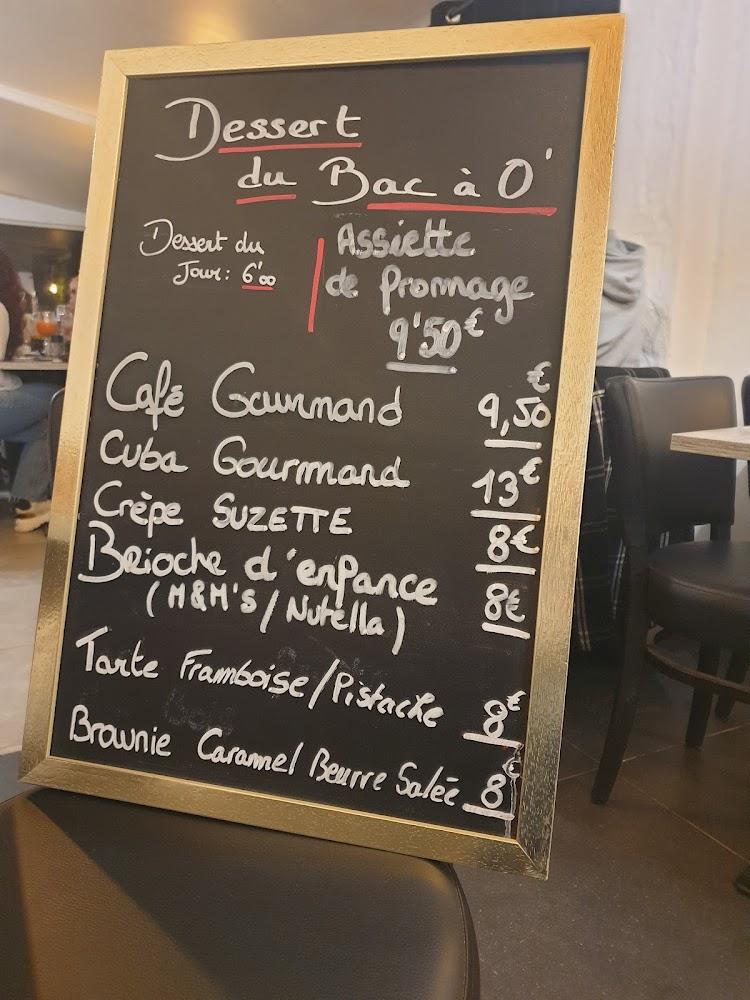 Dessert
du Bac à O'
Dessert du
Jour: 6'00
Assiette
de fromage
9'50€
Café Gourmand 9,50€
Cuba Gourmand 13€
Crèpe SUZETTE 8€
Brioche d'enfance 8€
(M&M's/Nutella)
Tarte Framboise/Pistache 8€
Brownie Caramel Beurre Salée 8€